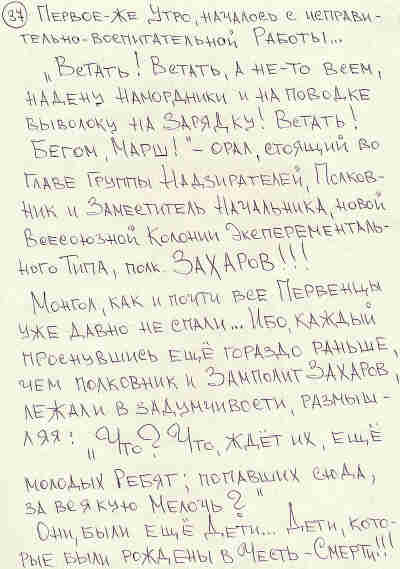 37 Первое-же Утро, началось с неправи-
тельно-воспитательной Работы...
„Встать! Встать, а не-то всем,
надену намордники и на поводке
выволоку на Зарядку! Встать!
Бегом, Марш!" – орал, стоящий во
главе Группы Надзирателей, Полков-
ник и Заместитель Начальника, новой
Всесоюзной Колонии Эксперементаль-
ного Типа, полк. ЗАХАРОВ!!!
Монгол, как и почти все Первенцы
уже давно не спали... Ибо, каждый
проснувшись ещё гораздо раньше,
чем полковник и Замполит Захаров,
лежали в задумчивости, размыш-
ляя: „Что? Что, ждёт их, ещё
молодых Ребят; попавших сюда,
за всякую Мелочь?"
Они, были ещё Дети... Дети, кото-
рые были рождены в Честь-Смерти!!!